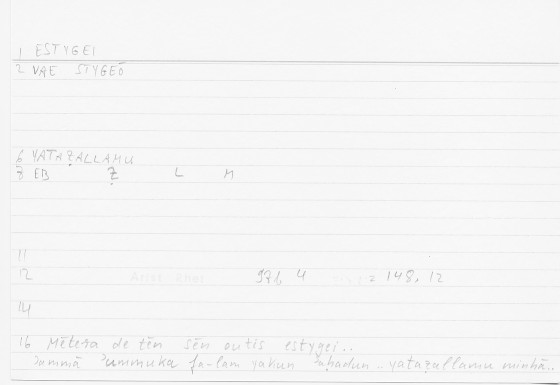 1 ESTYGEI
2 VRE STYGEŌ
6 YATAẒALLAMU
8 EB Ẓ L M
11
12 4 = 148, 12
14
16 Mētera de tēn sēn outis estygei..
ʾammā ʾummuka fa-lam yakun ʾaḥadun .. yataẓallamu minhā..